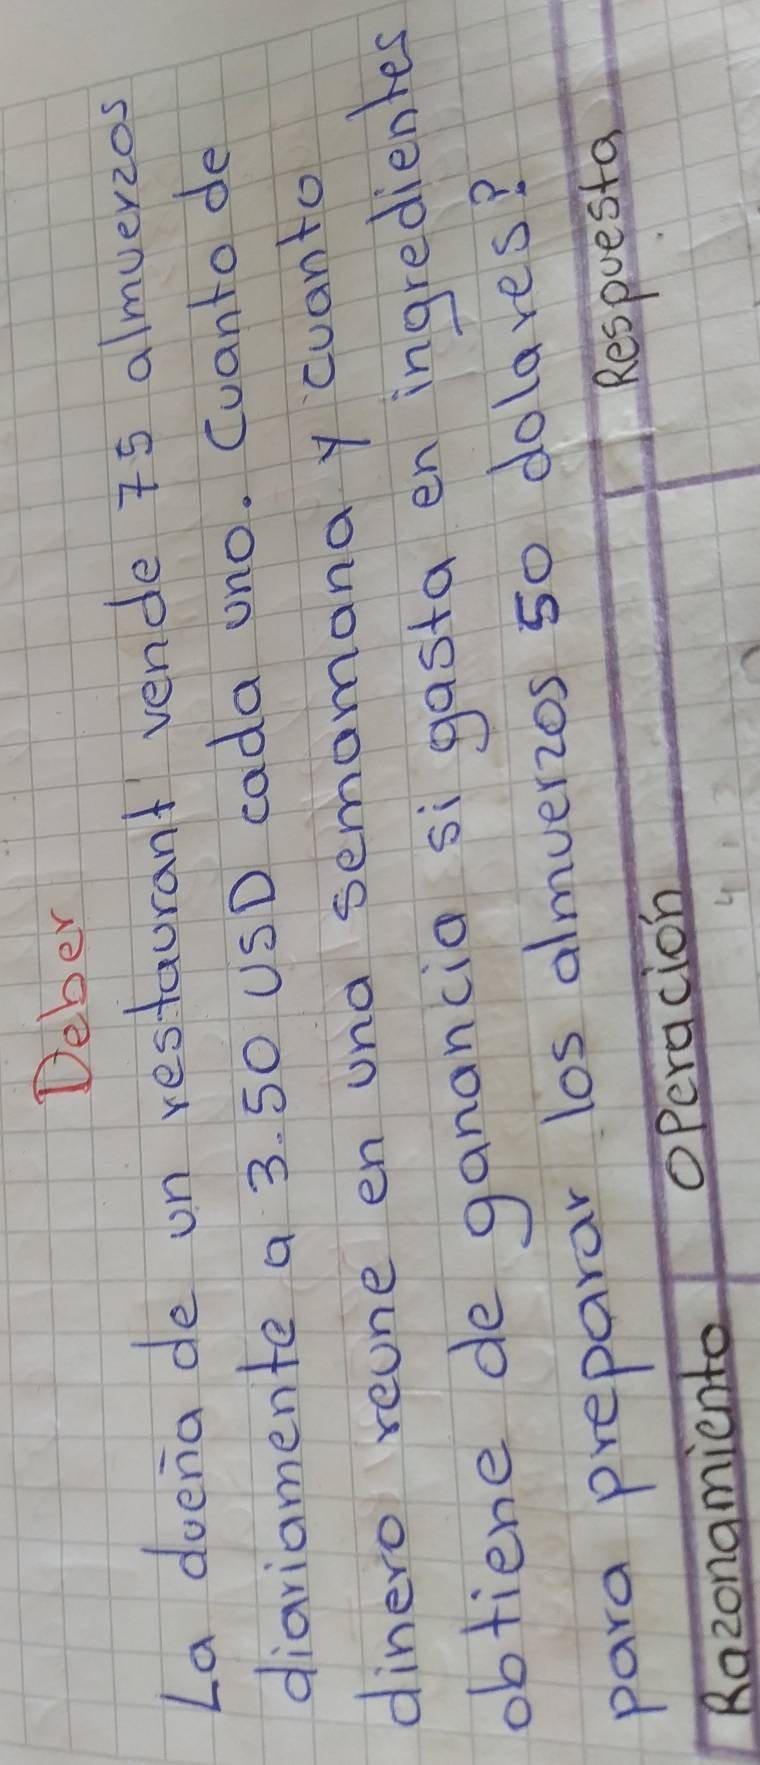 Deber
La dueña de un restaurant vende 75 almuerzos
diariamente a 3.50 USD cada uno. Cuanto de
dinero reune en una semamana y cuanto
obtiene de ganancia si gasta en ingredientes
para preparar los almuerzos 50 dolares?
Razonamiento Operación Respuesta